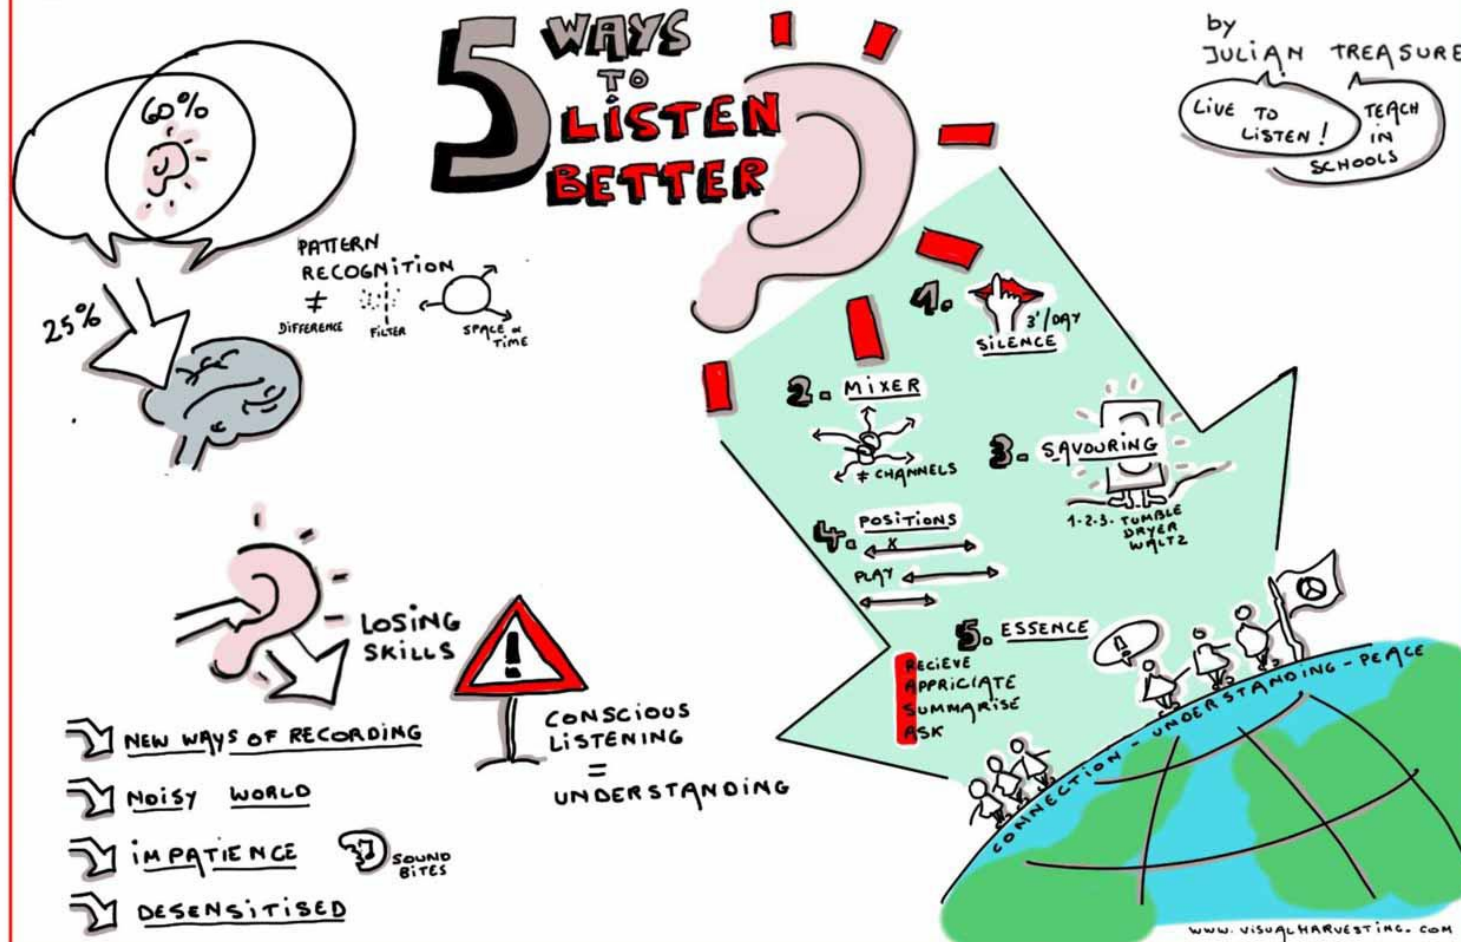 5 WAYS
TO
LISTEN
BETTER
by
JULIAN TREASURE
LIVE TO
LISTEN!
TEACH
IN
SCHOOLS
60%
25%
PATTERN
RECOGNITION
≠
DIFFERENCE
FILTER
SPACE &
TIME
1.
3'/DAY
SILENCE
2. MIXER
≠ CHANNELS
3. SAVOURING
1-2-3- TUMBLE
DRYER
WALTZ
4. POSITIONS
X
PLAY
5. ESSENCE
RECIEVE
APPRICIATE
SUMMARISE
ASK
!
CONNECTION - UNDERSTANDING - PEACE
LOSING
SKILLS
!
CONSCIOUS
LISTENING
=
UNDERSTANDING
NEW WAYS OF RECORDING
NOISY WORLD
IMPATIENCE
SOUND
BITES
DESENSITISED
WWW.VISUALHARVESTING.COM